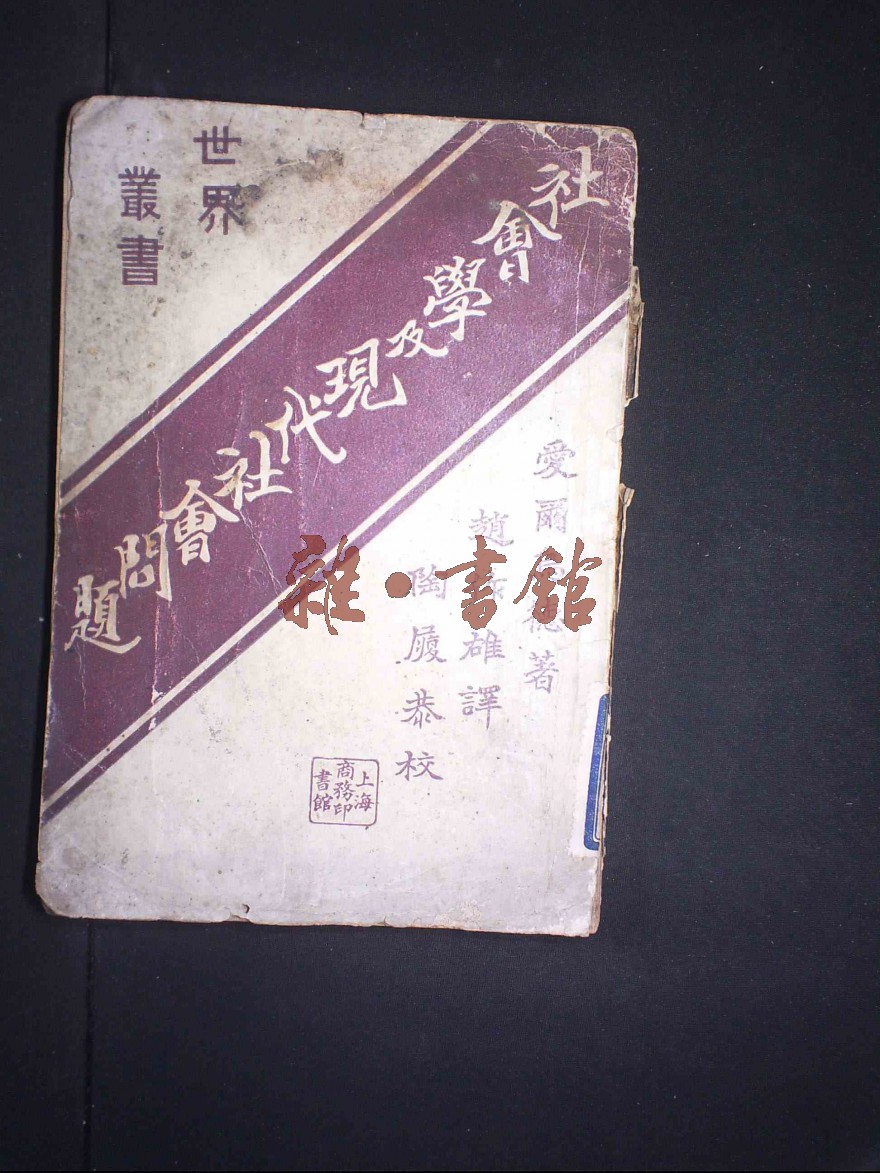 世界
叢書
社會學及現代社會問題
愛爾德著
趙雄譯
陶履恭校
上海
商務印
書館
雜·書館